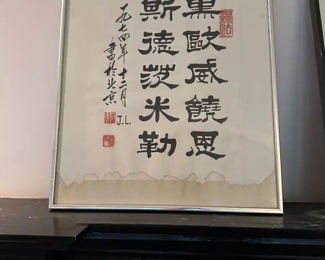 黑歐威饒恩
斯德茨米勒
一九七四年十二月 J.L.
書於北京